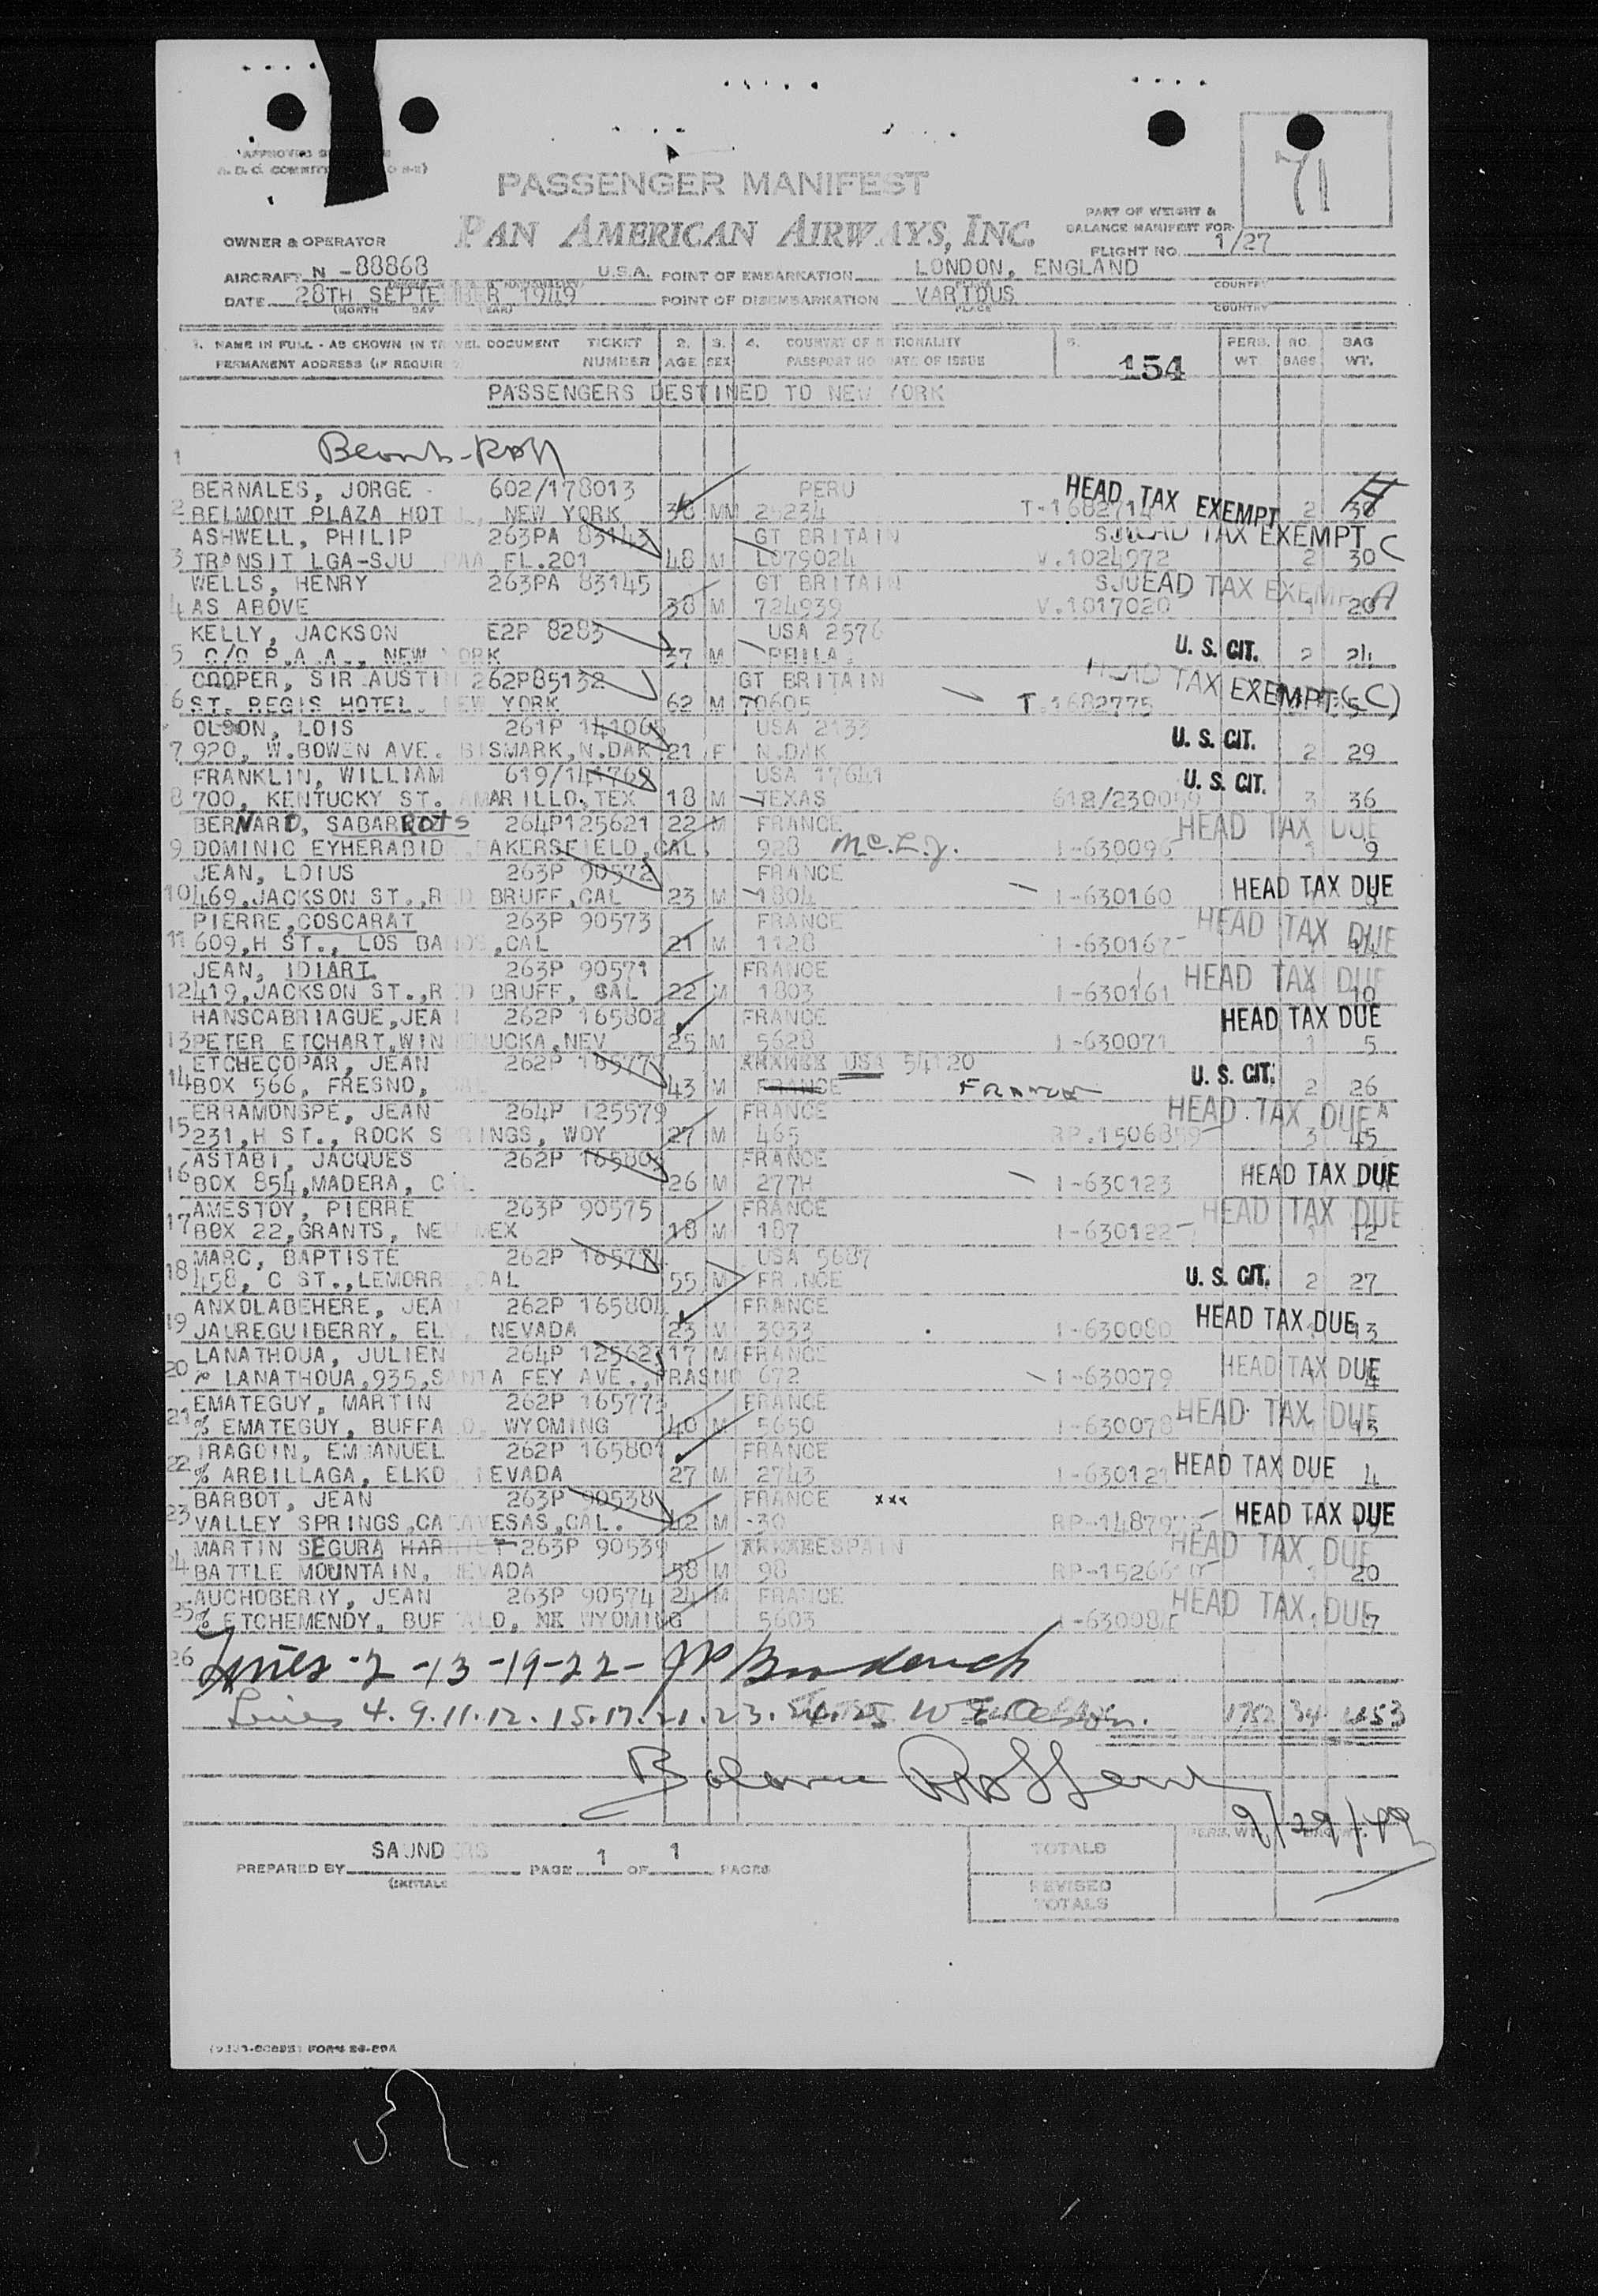 71
PASSENGER MANIFEST
PAN AMERICAN AIRWAYS, INC.
PART OF WEIGHT &
BALANCE MANIFEST FOR
OWNER & OPERATOR
FLIGHT NO. 1/27
AIRCRAFT N -88868 U.S.A. POINT OF EMBARKATION LONDON, ENGLAND COUNTRY
DATE 28TH SEPTEMBER 1949 POINT OF DISEMBARKATION VARIOUS
(MONTH DAY YEAR) PLACE COUNTRY
1. NAME IN FULL - AS SHOWN IN TRAVEL DOCUMENT TICKET 2. 3. 4. COUNTRY OF NATIONALITY 5. PERS. NO. BAG
PERMANENT ADDRESS (IF REQUIRED) NUMBER AGE SEX PASSPORT NO DATE OF ISSUE 154 WT. BAGS WT.
PASSENGERS DESTINED TO NEW YORK
1
BERNALES, JORGE - 602/178013 PERU HEAD TAX EXEMPT
2 BELMONT PLAZA HOTEL, NEW YORK MM T-1682714 2
ASHWELL, PHILIP 263PA 83143 GT BRITAIN SJU HEAD TAX EXEMPT C
3 TRANSIT LGA-SJU PAA FL.201 48 M L079024 V.1024972 2 30
WELLS, HENRY 263PA 83145 GT BRITAIN SJU HEAD TAX EXEMPT A
4 AS ABOVE 38 M 724939 V.1017020 1 20
KELLY, JACKSON E2P 8283 USA 2576
5 C/O P.A.A., NEW YORK 37 M PHILA. U. S. CIT. 2 24
COOPER, SIR AUSTIN 262P85132 GT BRITAIN HEAD TAX EXEMPT (C)
6 ST. REGIS HOTEL, NEW YORK 62 M 70605 T.1682775
OLSON, LOIS 261P 141065 USA 2133 U. S. CIT.
7 920, W.BOWEN AVE. BISMARK,N.DAK 21 F N.DAK 2 29
FRANKLIN, WILLIAM 619/141768 USA 17641 U. S. CIT.
8 700, KENTUCKY ST. AMARILLO,TEX 18 M TEXAS 618/230059 3 36
BERNARD, SABARROTS 264P125621 22 M FRANCE HEAD TAX DUE
9 DOMINIC EYHERABIDE,BAKERSFIELD,CAL. 928 Mc.L.J. I-630096 1 9
JEAN, LOIUS 263P 90572 FRANCE
10 469,JACKSON ST.,RED BRUFF,CAL 23 M 1804 I-630160 HEAD TAX DUE
PIERRE,COSCARAT 263P 90573 FRANCE HEAD TAX DUE
11 609,H ST., LOS BANOS,CAL 21 M 1128 I-630167
JEAN, IDIART 263P 90571 FRANCE HEAD TAX DUE
12 419,JACKSON ST.,RED BRUFF, CAL 22 M 1803 I-630161 10
HANSCABRIAGUE,JEAN 262P 165802 FRANCE HEAD TAX DUE
13 PETER ETCHART,WINNEMUCKA,NEV 25 M 5628 I-630071 1 5
ETCHECOPAR, JEAN 262P 165777 USA 54120
14 BOX 566, FRESNO, CAL 43 M FRANCE FRANCE U. S. CIT. 2 26
ERRAMONSPE, JEAN 264P 125579 FRANCE HEAD TAX DUE A
15 231,H ST., ROCK SPRINGS, WOY 27 M 465 RP.1506859 3 45
ASTABI, JACQUES 262P 165803 FRANCE
16 BOX 854,MADERA, CAL 26 M 277H I-630123 HEAD TAX DUE
AMESTOY, PIERRE 263P 90575 FRANCE HEAD TAX DUE
17 BOX 22,GRANTS, NEW MEX 18 M 187 I-630122 1 12
MARC, BAPTISTE 262P 16577 USA 5687
18 458, C ST.,LEMORRE,CAL 55 M FRANCE U. S. CIT. 2 27
ANXOLABEHERE, JEAN 262P 165804 FRANCE
19 JAUREGUIBERRY, ELY, NEVADA 23 M 3033 I-630080 HEAD TAX DUE 13
LANATHOUA, JULIEN 264P 125623 17 M FRANCE HEAD TAX DUE
20 % LANATHOUA,935,SANTA FEY AVE.,FRASNO 672 I-630079 4
EMATEGUY, MARTIN 262P 165773 FRANCE HEAD TAX DUE
21 % EMATEGUY, BUFFALO, WYOMING 40 M 5650 I-630078 13
IRAGOIN, EMMANUEL 262P 165801 FRANCE
22 % ARBILLAGA, ELKO, NEVADA 27 M 2743 I-630121 HEAD TAX DUE 4
BARBOT, JEAN 263P 90538 FRANCE xxx HEAD TAX DUE
23 VALLEY SPRINGS,CALAVESAS,CAL. 42 M -30
MARTIN SEGURA HARRIET 263P 90539 SPAIN HEAD TAX DUE
24 BATTLE MOUNTAIN, NEVADA 58 M 98 1 20
AUCHOBERRY, JEAN 263P 90574 24 M FRANCE HEAD TAX DUE
25 % ETCHEMENDY, BUFFALO, WYOMING 5603 1 7
26 Lines - 2 - 13 - 19 - 22 -
Lines 4. 9. 11. 12. 15. 17. 21. 23. 24. 25 1782 34 453
Balance
9/29/49
PERS. WT.
SAUNDERS TOTALS
PREPARED BY PAGE 1 OF 1 PAGES
(INITIALS
REVISED
TOTALS